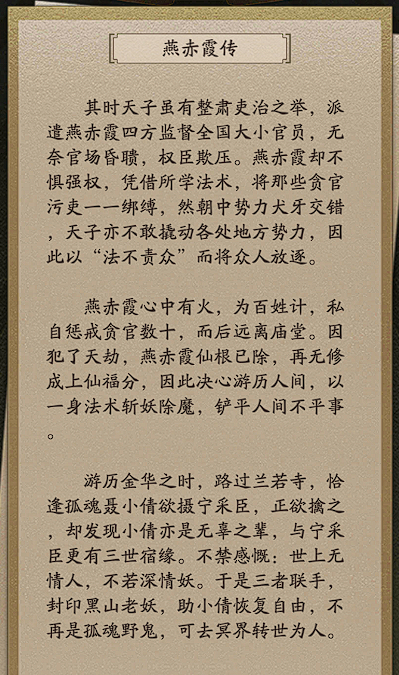 燕赤霞传
其时天子虽有整肃吏治之举，派
遣燕赤霞四方监督全国大小官员，无
奈官场昏聩，权臣欺压。燕赤霞却不
惧强权，凭借所学法术，将那些贪官
污吏一一绑缚，然朝中势力犬牙交错
，天子亦不敢撬动各处地方势力，因
此以“法不责众”而将众人放逐。
燕赤霞心中有火，为百姓计，私
自惩戒贪官数十，而后远离庙堂。因
犯了天劫，燕赤霞仙根已除，再无修
成上仙福分，因此决心游历人间，以
一身法术斩妖除魔，铲平人间不平事
。
游历金华之时，路过兰若寺，恰
逢孤魂聂小倩欲摄宁采臣，正欲擒之
，却发现小倩亦是无辜之辈，与宁采
臣更有三世宿缘。不禁感慨：世上无
情人，不若深情妖。于是三者联手，
封印黑山老妖，助小倩恢复自由，不
再是孤魂野鬼，可去冥界转世为人。